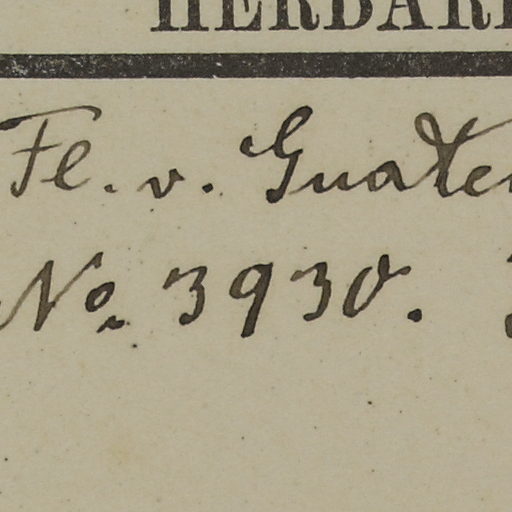 HERBARI
Fl. v. Guate
No. 3930.